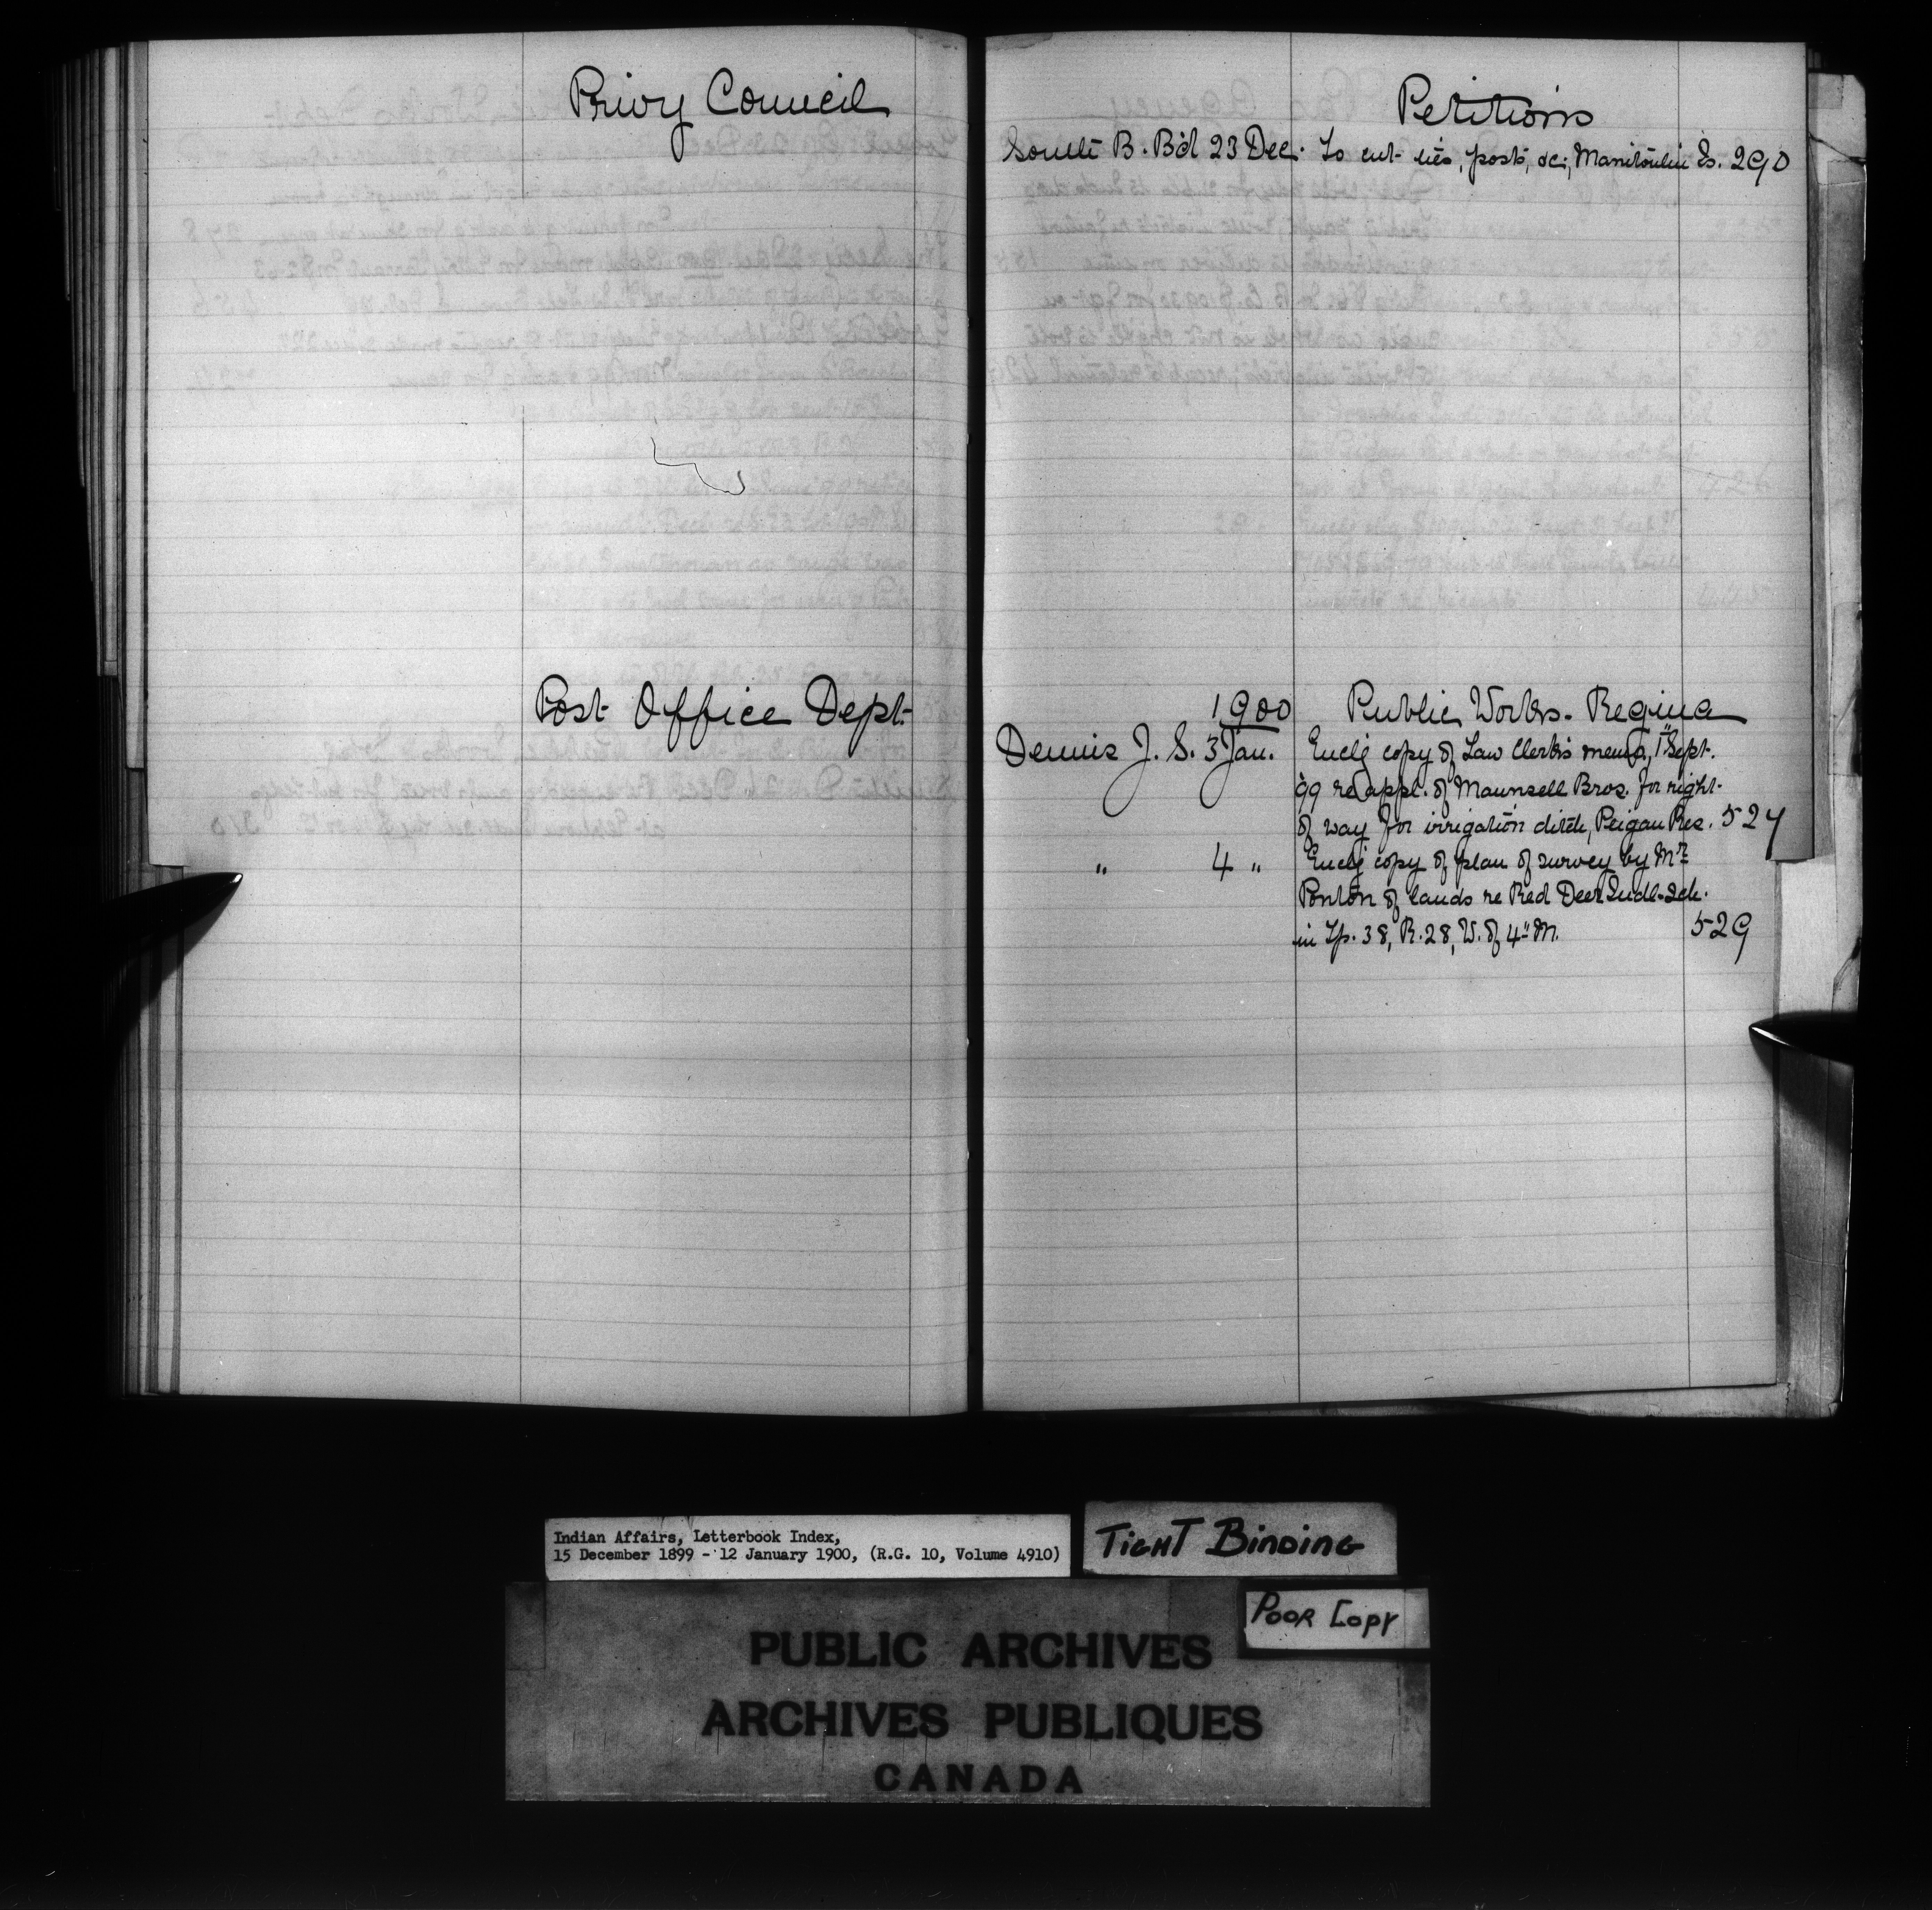 Privy Council
Post Office Dept.
Petitions
South B. B'd 23 Dec. To cut ties, posts, &c; Manitoulin Is. 290
1900 Public Works. Regina
Dennis J. S. 3 Jan. Encl'g copy of Law Clerk's memo, 1st Sept.
'99 re appl. of Maunsell Bros. for right-
of way for irrigation ditch, Peigan Res. 524
" 4 " Encl'g copy of plan of survey by Mr.
Ponton of lands re Red Deer Indl. Sch.
in Tp. 38, R. 28, W. of 4" M. 529
Indian Affairs, Letterbook Index,
15 December 1899 - 12 January 1900, (R.G. 10, Volume 4910)
TIGHT BINDING
POOR COPY
PUBLIC ARCHIVES
ARCHIVES PUBLIQUES
CANADA